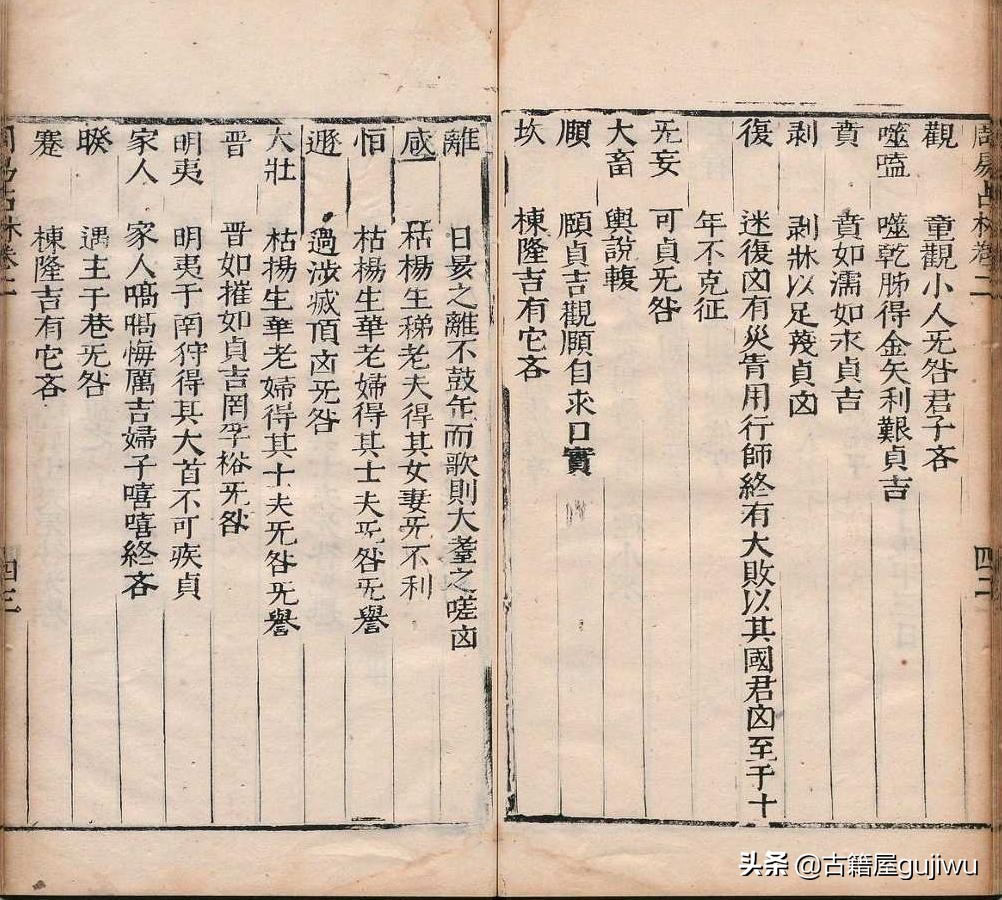 周易占林卷二 四二
觀 童觀小人旡咎君子吝
噬嗑 噬乾胏得金矢利艱貞吉
賁 賁如濡如永貞吉
剥 剥牀以足蔑貞凶
復 迷復凶有災眚用行師終有大敗以其國君凶至于十
年不克征
旡妄 可貞旡咎
大畜 輿說輹
頤 頤貞吉觀頤自求口實
坎 棟隆吉有它吝
離 日昃之離不鼓缶而歌則大耋之嗟凶
咸 枯楊生稊老夫得其女妻旡不利
恒 枯楊生華老婦得其士夫旡咎旡譽
遯 過涉滅頂凶旡咎
大壯 枯楊生華老婦得其士夫旡咎旡譽
晉 晉如摧如貞吉罔孚裕旡咎
明夷 明夷于南狩得其大首不可疾貞
家人 家人嗃嗃悔厲吉婦子嘻嘻終吝
睽 遇主于巷旡咎
蹇 棟隆吉有它吝
周易占林卷二 四三
头条 @古籍屋gujiwu